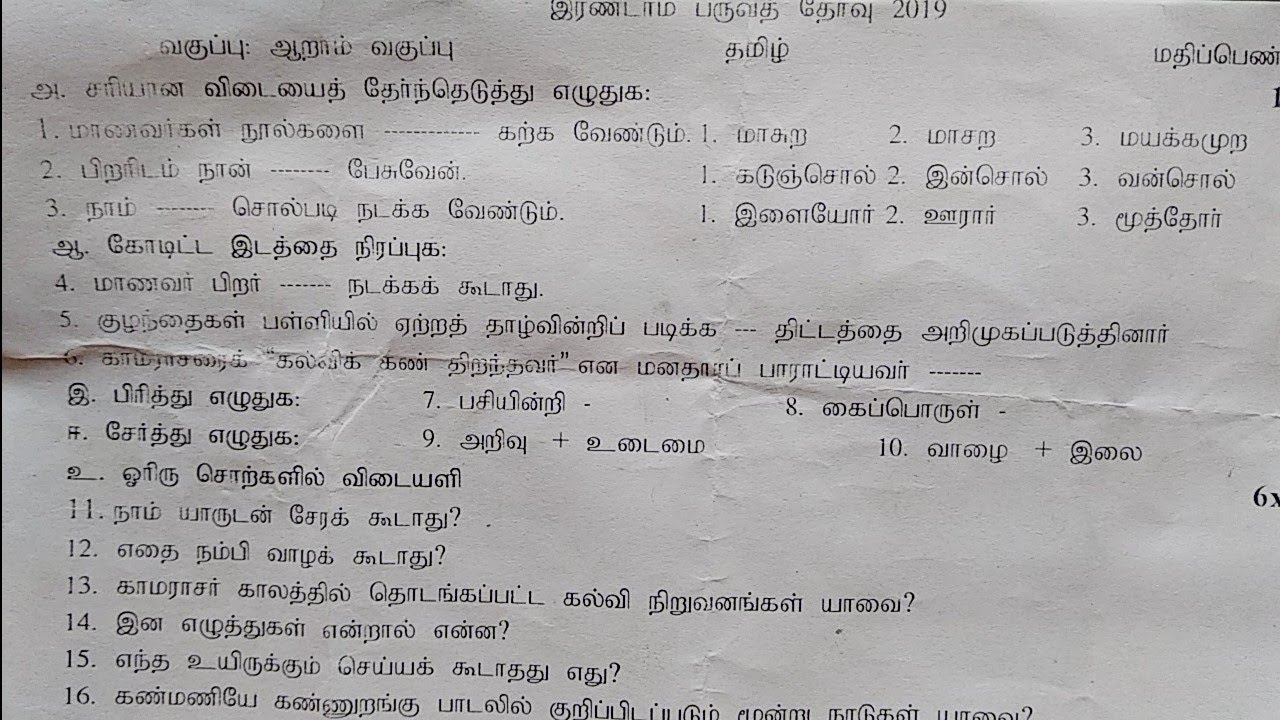 இரண்டாம் பருவத் தேர்வு 2019
வகுப்பு: ஆறாம் வகுப்பு தமிழ் மதிப்பெண்
அ. சரியான விடையைத் தேர்ந்தெடுத்து எழுதுக: 1
1. மாணவர்கள் நூல்களை ------------- கற்க வேண்டும். 1. மாசுற 2. மாசற 3. மயக்கமுற
2. பிறரிடம் நான் -------- பேசுவேன். 1. கடுஞ்சொல் 2. இன்சொல் 3. வன்சொல்
3. நாம் -------- சொல்படி நடக்க வேண்டும். 1. இளையோர் 2. ஊரார் 3. மூத்தோர்
ஆ. கோடிட்ட இடத்தை நிரப்புக:
4. மாணவர் பிறர் ------- நடக்கக் கூடாது.
5. குழந்தைகள் பள்ளியில் ஏற்றத் தாழ்வின்றிப் படிக்க --- திட்டத்தை அறிமுகப்படுத்தினார்
6. காமராசரைக் "கல்விக் கண் திறந்தவர்" என மனதாரப் பாராட்டியவர் -------
இ. பிரித்து எழுதுக: 7. பசியின்றி - 8. கைப்பொருள் -
ஈ. சேர்த்து எழுதுக: 9. அறிவு + உடைமை 10. வாழை + இலை
உ. ஓரிரு சொற்களில் விடையளி 6x
11. நாம் யாருடன் சேரக் கூடாது?
12. எதை நம்பி வாழக் கூடாது?
13. காமராசர் காலத்தில் தொடங்கப்பட்ட கல்வி நிறுவனங்கள் யாவை?
14. இன எழுத்துகள் என்றால் என்ன?
15. எந்த உயிருக்கும் செய்யக் கூடாதது எது?
16. கண்மணியே கண்ணுறங்கு பாடலில் குறிப்பிடப்படும் மூன்று நாடுகள் யாவை?